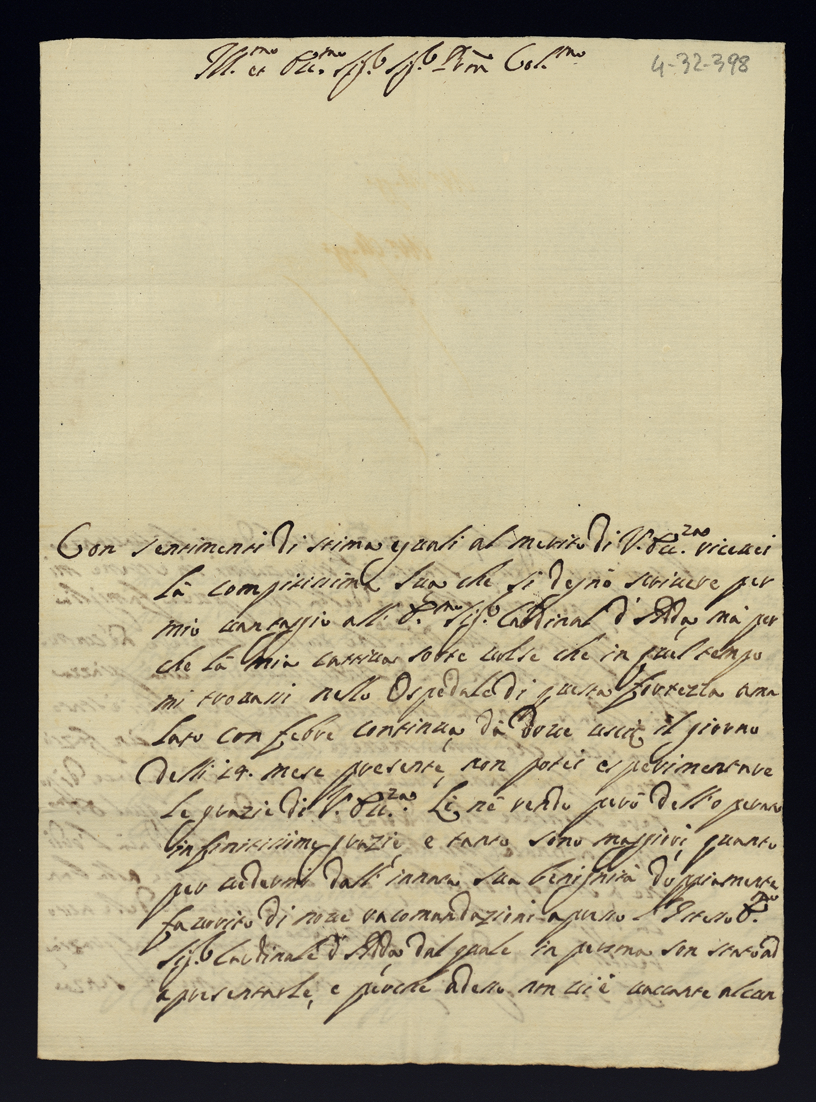 Ill.mo et Ecc.mo Sig.r Sig.r P.ron Col.mo
4-32-398
Con sentimenti di stima eguali al merito di V. Ecc.za riceuei
la compitissima sua che si degnò scriuere per
mio uantaggio all' E.mo Sig.r Cardinal d'Adda, mà per
che la mia cattiua sorte uolse che in quel tempo
mi trouassi nello Ospedale di questa Fortezza ama
lato con febre continua, dà doue uscij il giorno
delli 24. mese presente, non potei esperimentare
le grazie di V. Ecc.za. Le ne rendo però dell'operato
infinitissime grazie, e tanto sono maggiori, quanto
per uedermi dall'innata sua benignità doppiamente
fauorito di noue racomandazioni apresso l'istesso E.mo
Sig.r Cardinale d'Adda dal quale in persona son stato ad
apresentarle, e perche adesso non ui è uaccante alcun